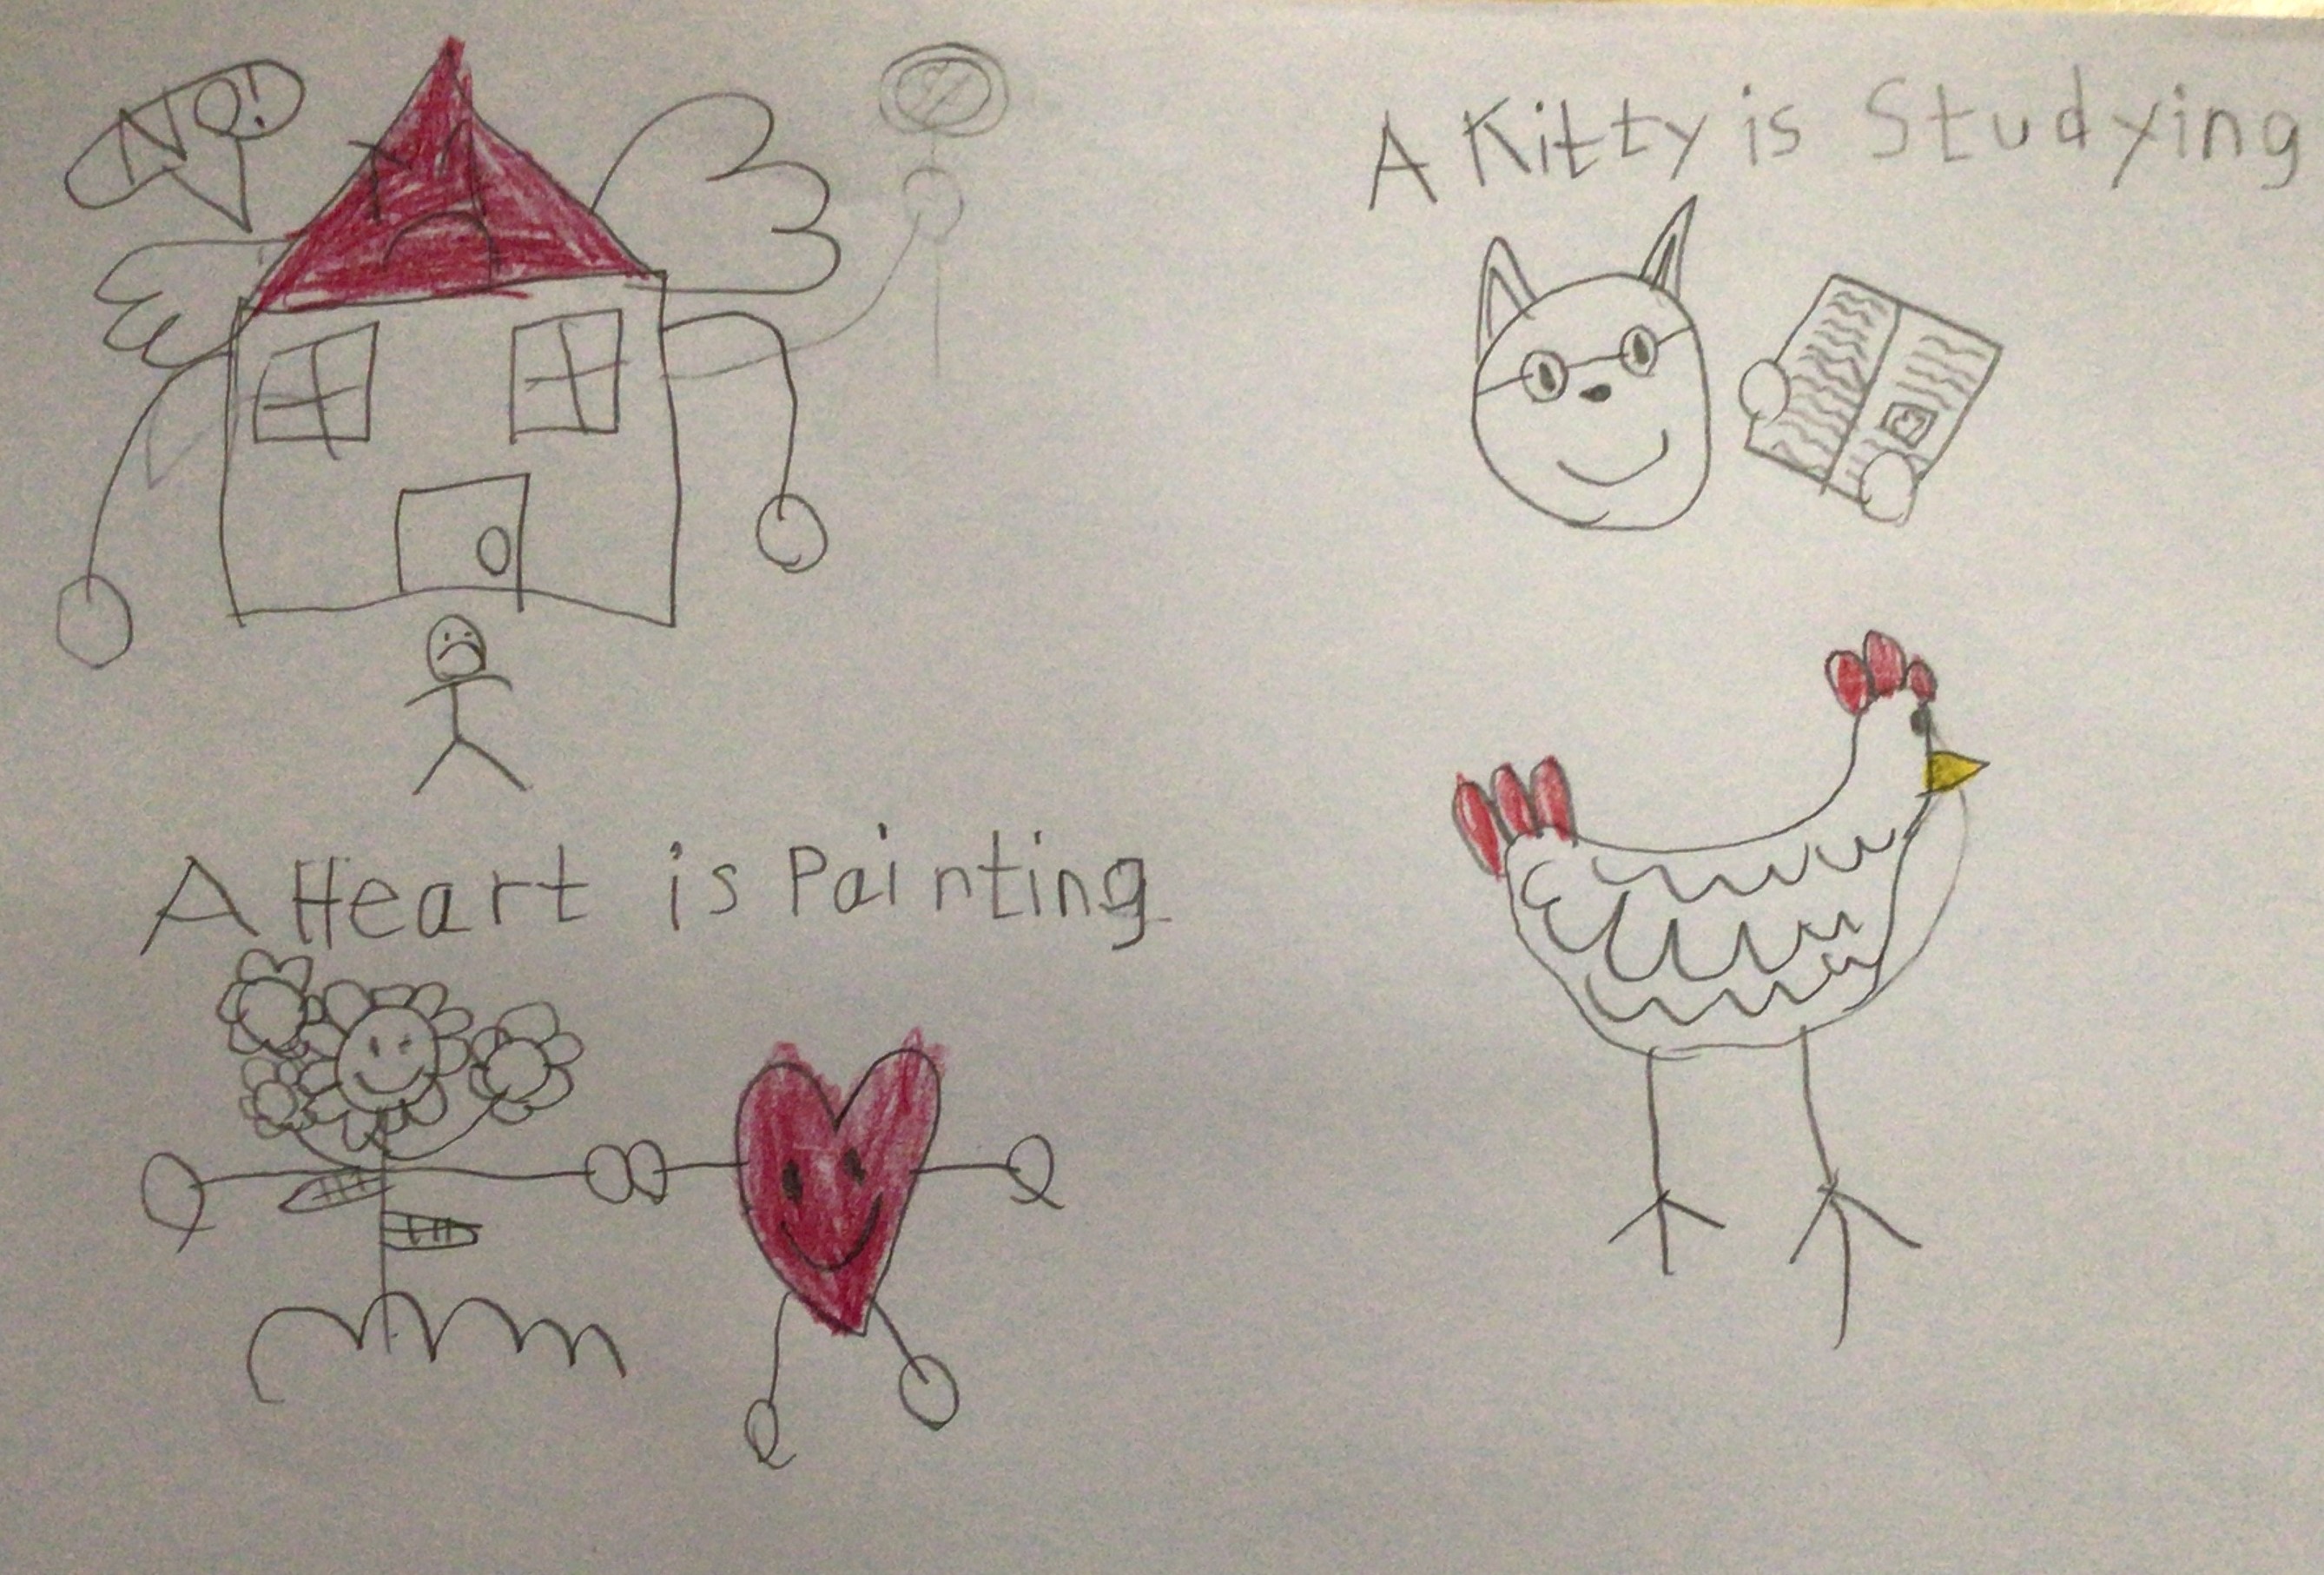 NO!
A Kitty is Studying
A Heart is Painting